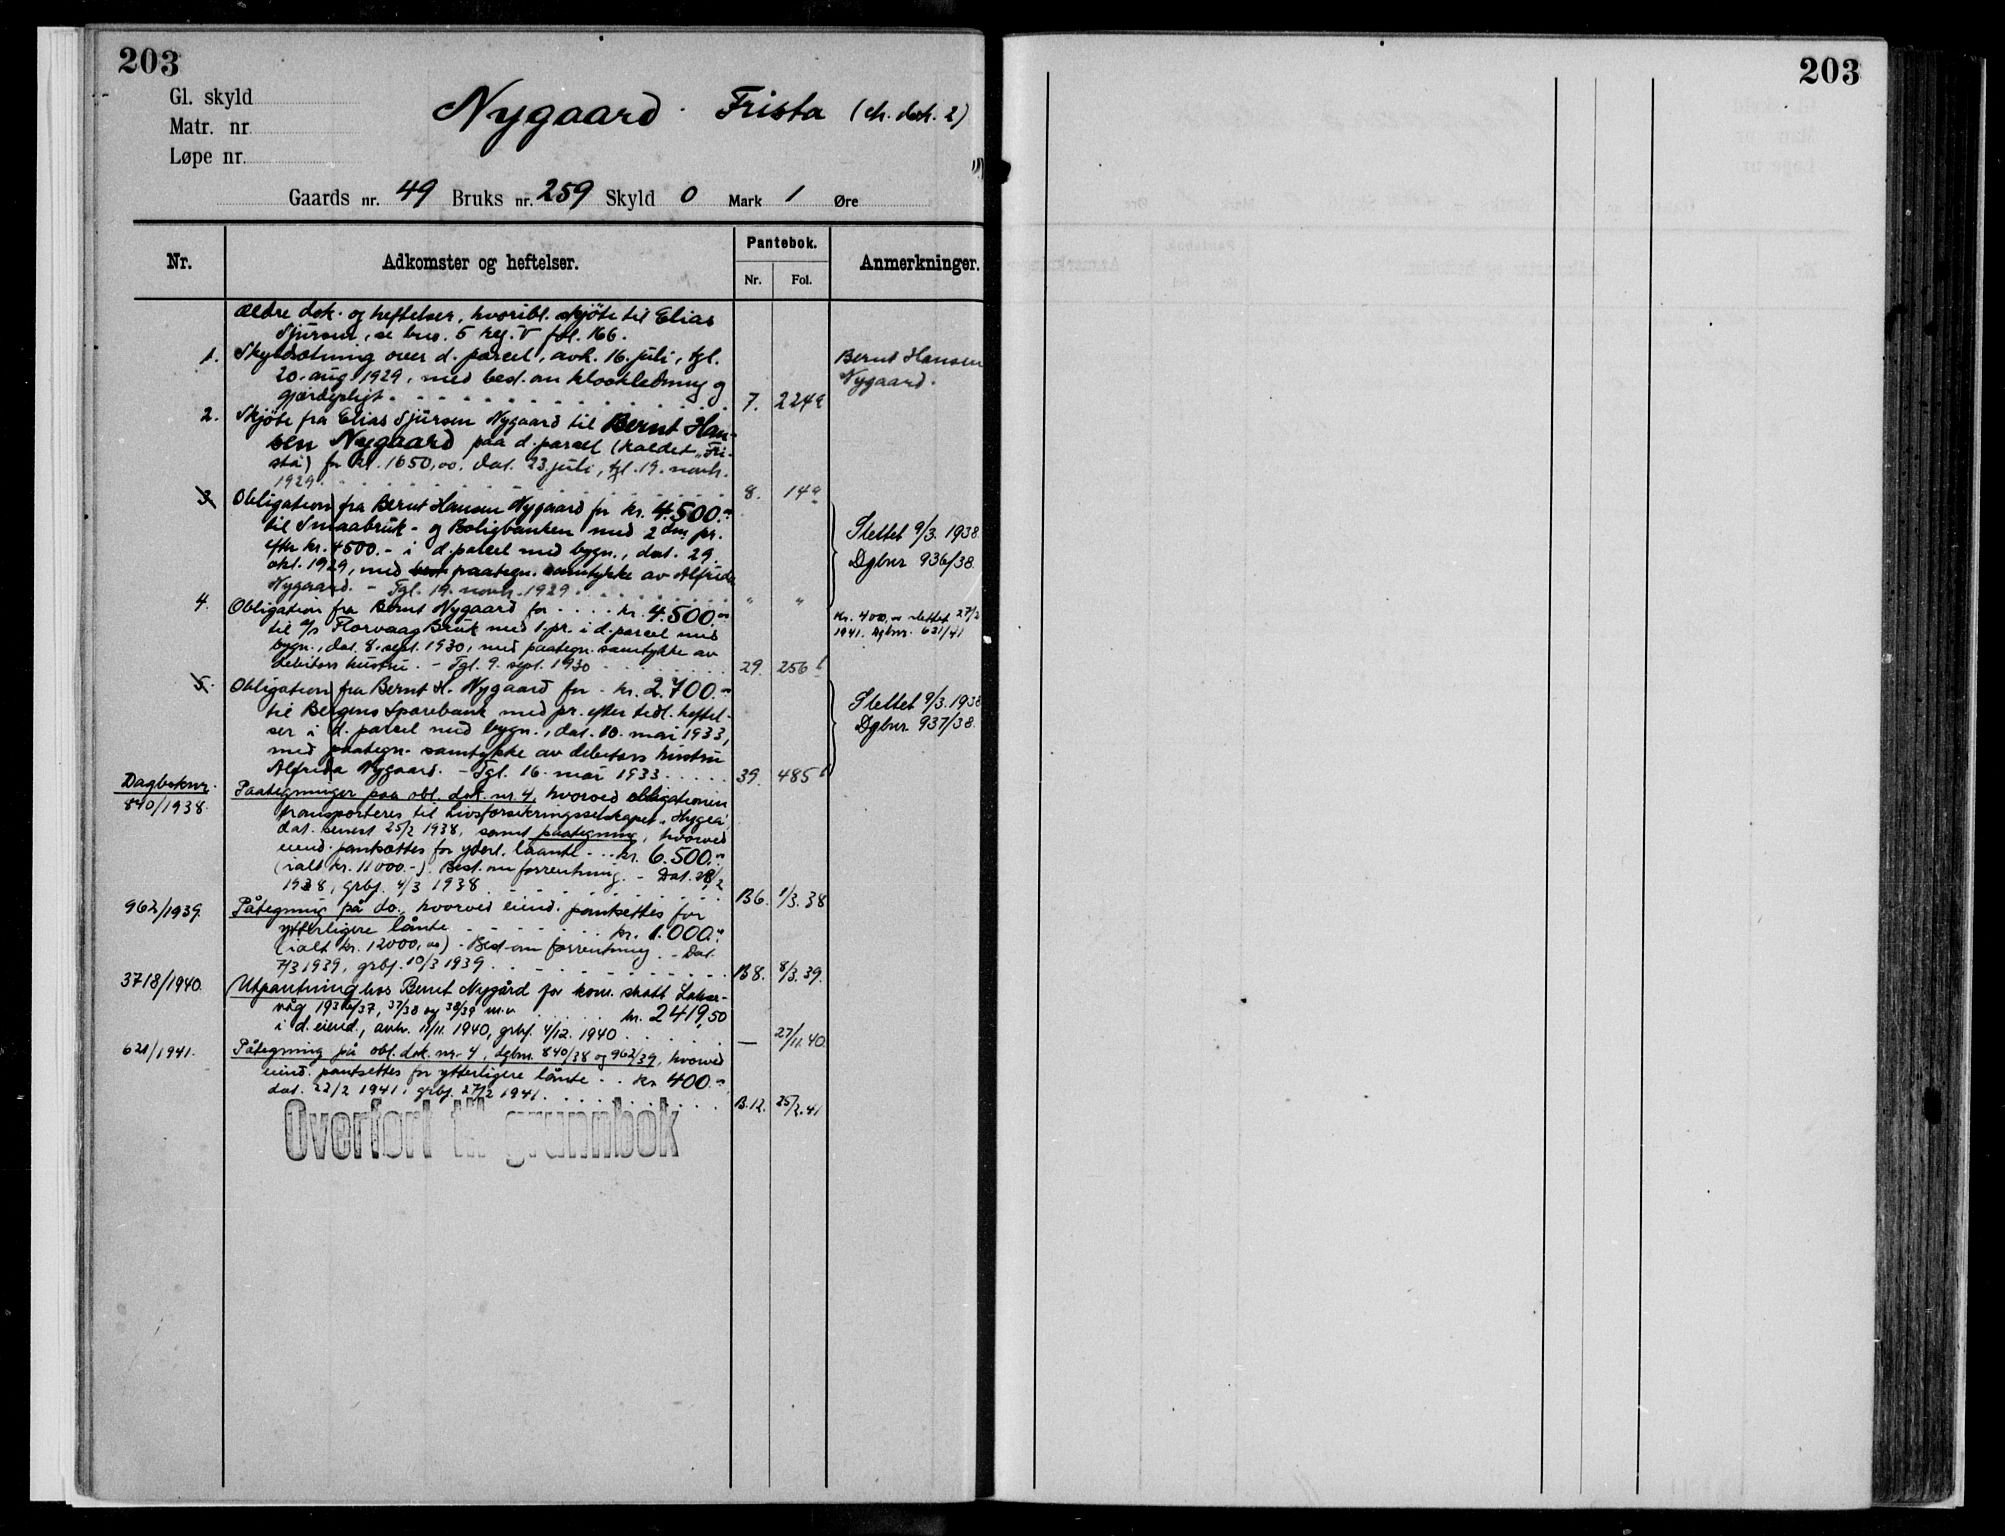 203
203
Gl. skyld
Matr. nr.
Løpe nr.
Nygaard Frista (cfr. dok. 2)
Gaards nr. 49 Bruks nr. 259 Skyld 0 Mark 1 Øre
Nr.
Adkomster og heftelser.
Pantebok.
Nr. Fol.
Anmerkninger.
Ældre dok. og heftelser, hvoribl. skjöte til Elias
Sjursen, se bus. 5 reg. V fol. 166.
1. Skyldsætning over d. parcel, avh. 16. juli, tgl.
20. aug. 1929, med best. om kloakledning og
gjærdepligt. 7. 224a
Bernt Hansen
Nygaard.
2. Skjöte fra Elias Sjursen Nygaard til Bernt Han-
sen Nygaard paa d. parcel (kaldet "Fri-
sta") for kr. 1650,00. Dat. 23. juli, tgl. 19. novb.
1929 8. 14a
3. Obligation fra Bernt Hansen Nygaard for kr. 4.500.-
til Smaabruk- og Boligbanken med 2den pr.
efter kr. 4500.- i d. parcel med bygn., dat. 29.
okt. 1929, med best paategn. samtykke av Alfrida
Nygaard. - Tgl. 19. novb. 1929 " "
Slettet 9/3. 1938
Dgbnr 936/38.
4. Obligation fra Bernt Nygaard for kr. 4.500.00
til A/s Florvaag Bruk med 1. pr. i d. parcel med
bygn., dat. 8. sept. 1930, med paategn. samtykke av
debitors hustru. - Tgl. 9. sept. 1930 29. 256b
kr. 400,00 slettet 27/2
1941. Dgbnr. 621/41
5. Obligation fra Bernt H. Nygaard for kr. 2.700.-
til Bergens Sparebank med pr. efter tidl. heftel-
ser i d. parcel med bygn., dat. 10. mai 1933,
med paategn. samtykke av debitors hustru
Alfrida Nygaard. - Tgl. 16. mai 1933 39. 485b
Slettet 9/3. 1938
Dgbnr 937/38.
Dagboknr.
840/1938. Paategninger paa obl. dok. nr. 4, hvorved obligationen
transporteres til Livsforsikringsselskapet "Hygea",
dat. senest 25/2 1938, samt paategning, hvorved
eiend. pantsættes for yderl. laante kr. 6.500.-
(ialt kr. 11000.-). Best. om forrentning. - Dat. 28/2
1938, grbf. 4/3 1938 B6. 1/3. 38
962/1939. Påtegning på do., hvorved eiend. pantsettes for
ytterligere lånte kr. 1.000.-
(ialt kr. 12000,00) - Best. om forrentning. - Dat.
7/3 1939, grbf. 10/3 1939 B8. 8/3. 39.
3718/1940. Utpantning hos Bernt Nygård for kom. skatt Lakse-
våg 1936/37, 37/38 og 38/39 m.v. kr. 2419,50
i d. eiend., avh. 11/11. 1940, grbf. 4/12. 1940 — 27/11. 40.
621/1941. Påtegning på obl. dok. nr. 4, dgbnr. 840/38 og 962/39, hvorved
eiend. pantsettes for ytterligere lånte kr 400.-
dat. 22/2 1941, grbf. 27/2 1941. B.12. 25/2. 41
Overført til grunnbok